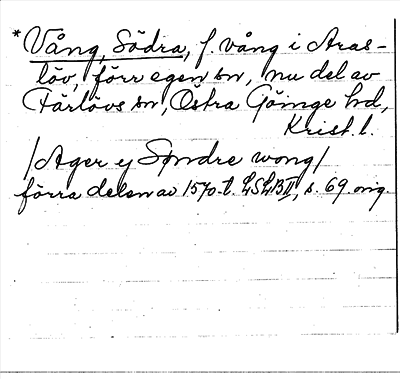 * Vång, Södra, f. vång i Aras-
löv, förr egen sn, nu del av
Färlövs sn, Östra Göinge hd,
Krist. l.
/Ager ej Syndre wong/
förra delen av 1570-t. LSLB II, s. 69 orig.